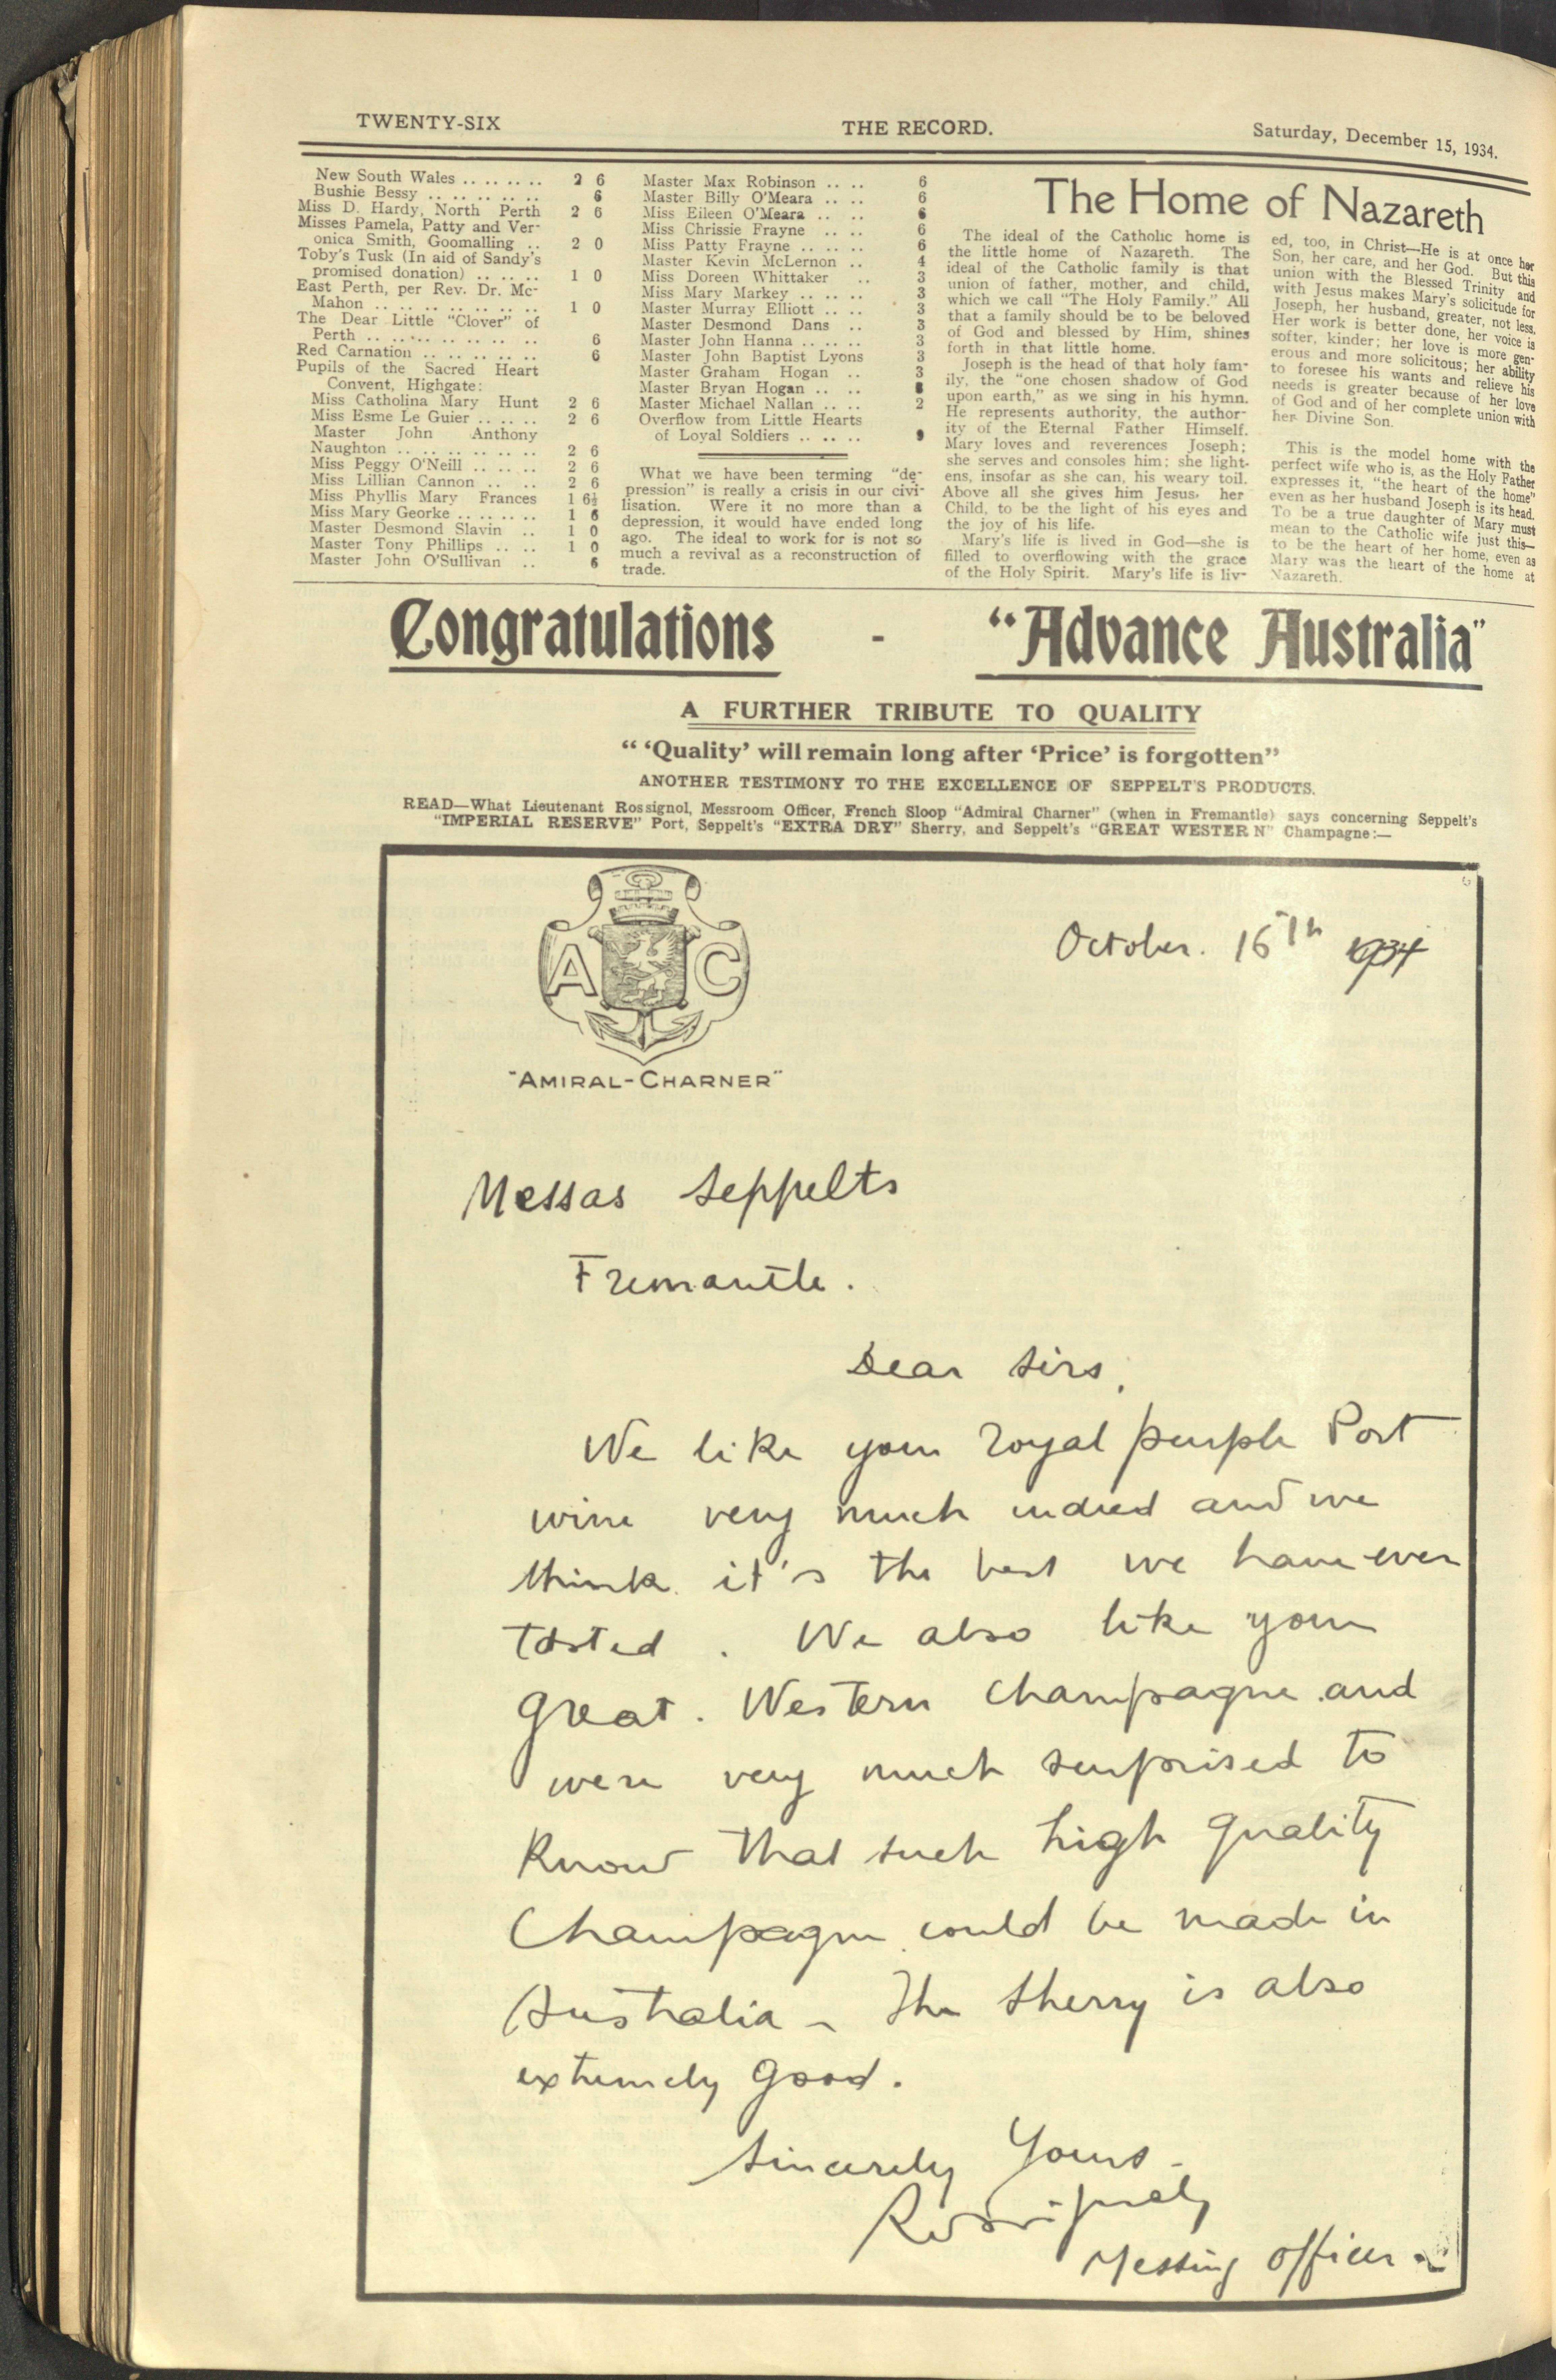 TWENTY-SIX
THE RECORD.
Saturday, December 15, 1934.
New South Wales .. .. .. .. 2 6
Bushie Bessy .. .. .. .. .. 6
Miss D. Hardy, North Perth 2 6
Misses Pamela, Patty and Ver-
onica Smith, Goomalling .. 2 0
Toby's Tusk (In aid of Sandy's
promised donation) .. .. .. 1 0
East Perth, per Rev. Dr. Mc-
Mahon .. .. .. .. .. .. .. 1 0
The Dear Little "Clover" of
Perth .. .. .. .. .. .. .. 6
Red Carnation .. .. .. .. .. 6
Pupils of the Sacred Heart
Convent, Highgate:
Miss Catholina Mary Hunt 2 6
Miss Esme Le Guier .. .. .. 2 6
Master John Anthony
Naughton .. .. .. .. .. .. 2 6
Miss Peggy O'Neill .. .. .. 2 6
Miss Lillian Cannon .. .. 2 6
Miss Phyllis Mary Frances 1 6½
Miss Mary Georke .. .. .. .. 1 6
Master Desmond Slavin .. 1 0
Master Tony Phillips .. .. 1 0
Master John O'Sullivan .. 6
Master Max Robinson .. .. 6
Master Billy O'Meara .. .. 6
Miss Eileen O'Meara .. .. 6
Miss Chrissie Frayne .. .. 6
Miss Patty Frayne .. .. .. 6
Master Kevin McLernon .. 4
Miss Doreen Whittaker .. 3
Miss Mary Markey .. .. .. 3
Master Murray Elliott .. .. 3
Master Desmond Dans .. 3
Master John Hanna .. .. .. 3
Master John Baptist Lyons 3
Master Graham Hogan .. 3
Master Bryan Hogan .. ..
Master Michael Nallan .. .. 2
Overflow from Little Hearts
of Loyal Soldiers .. .. .. 9
What we have been terming "de-
pression" is really a crisis in our civi-
lisation. Were it no more than a
depression, it would have ended long
ago. The ideal to work for is not so
much a revival as a reconstruction of
trade.
The Home of Nazareth
The ideal of the Catholic home is
the little home of Nazareth. The
ideal of the Catholic family is that
union of father, mother, and child,
which we call "The Holy Family." All
that a family should be to be beloved
of God and blessed by Him, shines
forth in that little home.
Joseph is the head of that holy fam-
ily, the "one chosen shadow of God
upon earth," as we sing in his hymn.
He represents authority, the author-
ity of the Eternal Father Himself.
Mary loves and reverences Joseph;
she serves and consoles him; she light-
ens, insofar as she can, his weary toil.
Above all she gives him Jesus, her
Child, to be the light of his eyes and
the joy of his life.
Mary's life is lived in God—she is
filled to overflowing with the grace
of the Holy Spirit. Mary's life is liv-
ed, too, in Christ—He is at once her
Son, her care, and her God. But this
union with the Blessed Trinity and
with Jesus makes Mary's solicitude for
Joseph, her husband, greater, not less.
Her work is better done, her voice is
softer, kinder; her love is more gen-
erous and more solicitous; her ability
to foresee his wants and relieve his
needs is greater because of her love
of God and of her complete union with
her Divine Son.
This is the model home with the
perfect wife who is, as the Holy Father
expresses it, "the heart of the home"
even as her husband Joseph is its head.
To be a true daughter of Mary must
mean to the Catholic wife just this—
to be the heart of her home, even as
Mary was the heart of the home at
Nazareth.
Congratulations - "Advance Australia"
A FURTHER TRIBUTE TO QUALITY
" 'Quality' will remain long after 'Price' is forgotten"
ANOTHER TESTIMONY TO THE EXCELLENCE OF SEPPELT'S PRODUCTS.
READ—What Lieutenant Rossignol, Messroom Officer, French Sloop "Admiral Charner" (when in Fremantle) says concerning Seppelt's
"IMPERIAL RESERVE" Port, Seppelt's "EXTRA DRY" Sherry, and Seppelt's "GREAT WESTERN" Champagne:—
A C
"AMIRAL-CHARNER"
October. 16th 1934
Messas Seppelts
Fremantle.
Dear Sirs,
We like your royal purple Port
wine very much indeed and we
think it's the best we have ever
tasted. We also like your
Great. Western Champagne and
were very much surprised to
know that such high quality
Champagne could be made in
Australia - The Sherry is also
extremely good.
Sincerely Yours -
Messing Officer -